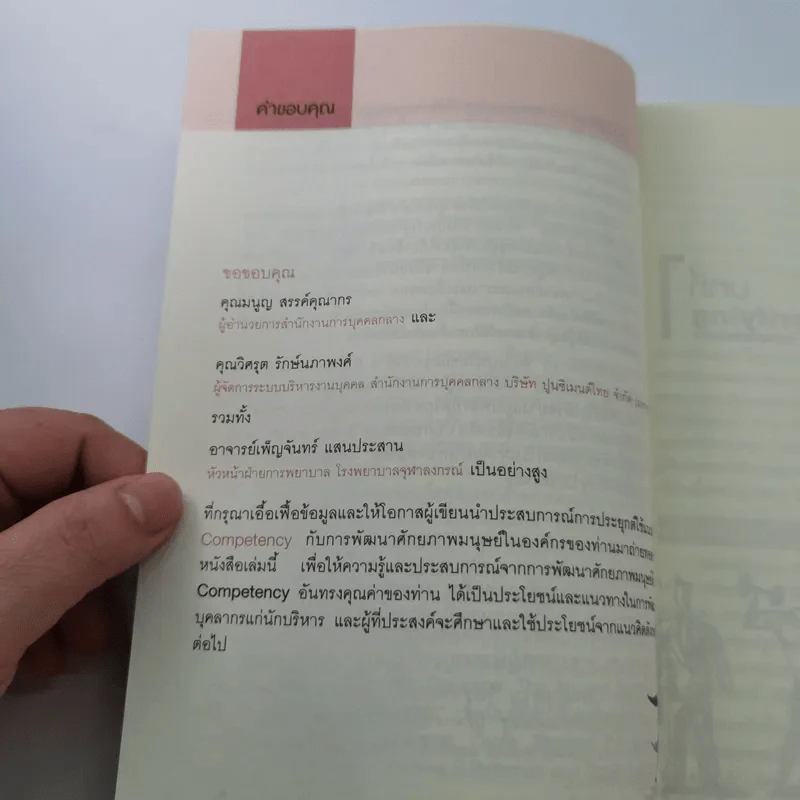 คำขอบคุณ
ขอขอบคุณ
คุณมนูญ สรรค์คุณากร
ผู้อำนวยการสำนักงานการบุคคลกลาง และ
คุณวิศรุต รักษ์นภาพงศ์
ผู้จัดการระบบบริหารงานบุคคล สำนักงานการบุคคลกลาง บริษัท ปูนซิเมนต์ไทย จำกัด
รวมทั้ง
อาจารย์เพ็ญจันทร์ แสนประสาน
หัวหน้าฝ่ายการพยาบาล โรงพยาบาลจุฬาลงกรณ์ เป็นอย่างสูง
ที่กรุณาเอื้อเฟื้อข้อมูลและให้โอกาสผู้เขียนนำประสบการณ์การประยุกต์ใช้
Competency กับการพัฒนาศักยภาพมนุษย์ในองค์กรของท่านมาถ่าย
หนังสือเล่มนี้ เพื่อให้ความรู้และประสบการณ์จากการพัฒนาศักยภาพมนุษย์
Competency อันทรงคุณค่าของท่าน ได้เป็นประโยชน์และแนวทางในการ
บุคลากรแก่นักบริหาร และผู้ที่ประสงค์จะศึกษาและใช้ประโยชน์จากแนวคิด
ต่อไป